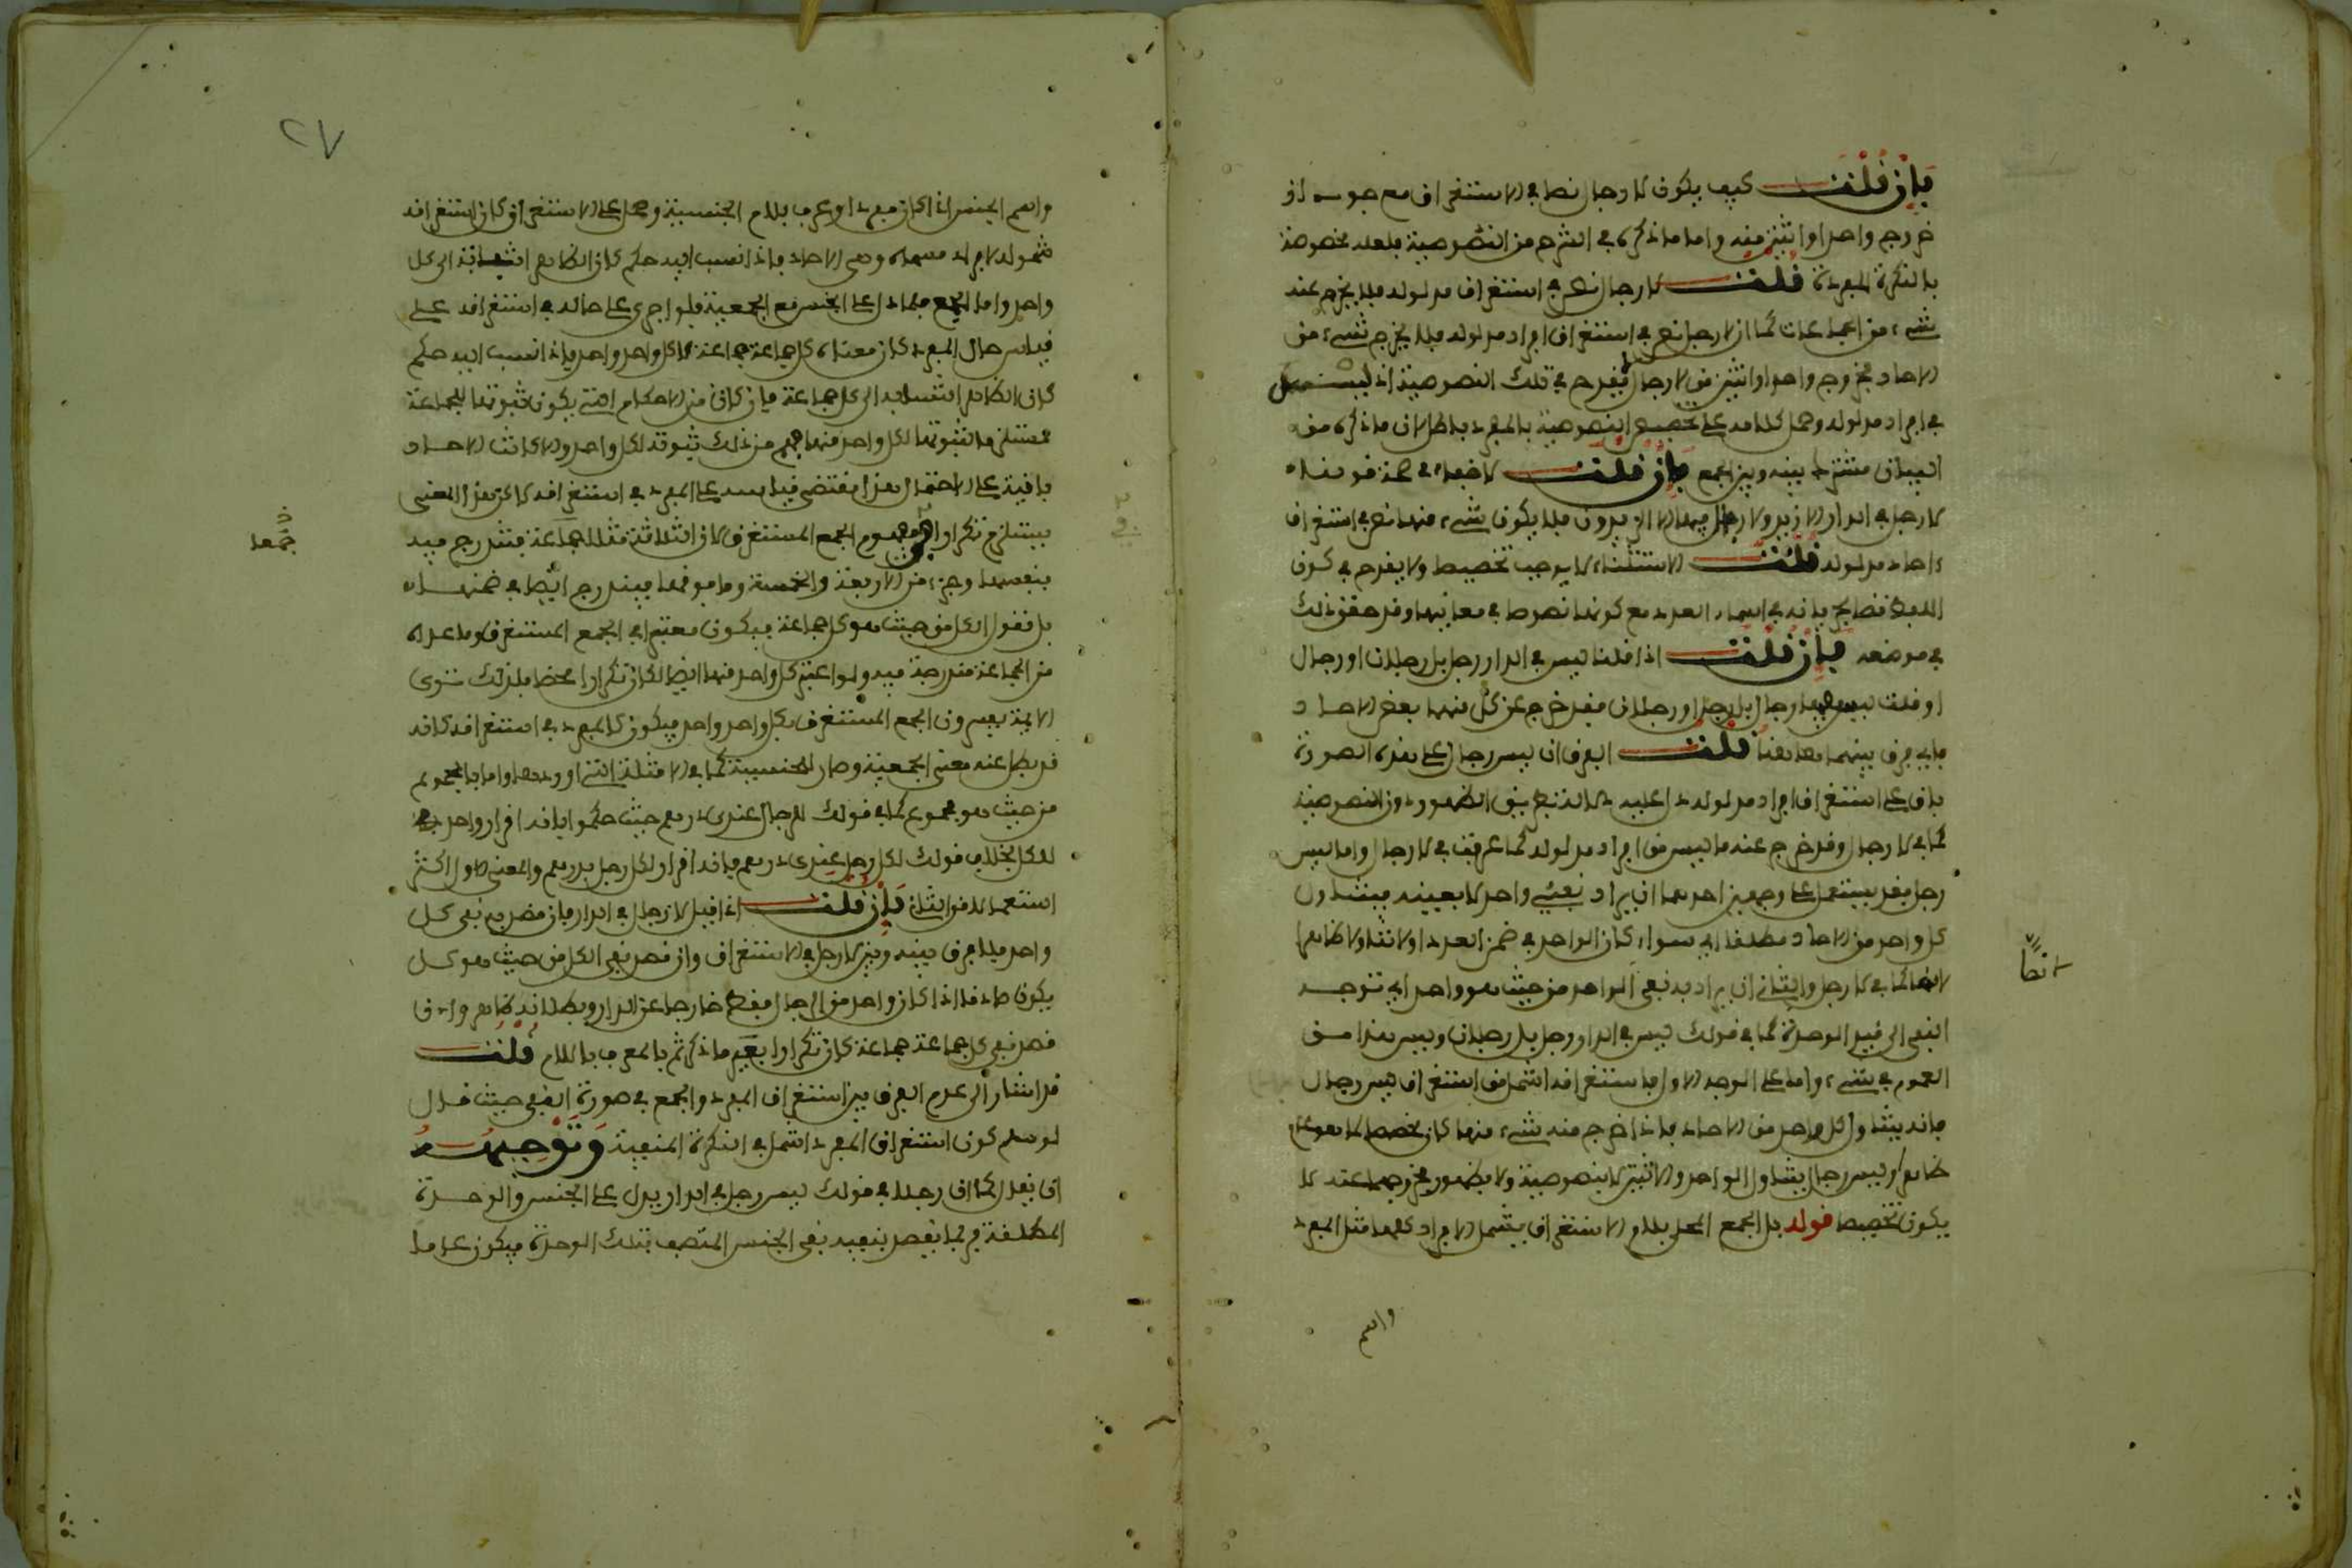 فإن قلت كيف يكون لا رجال نصا في الاستغراق مع جواز
خروج واحد او اثنين منه واما ما ذكره في الشرح من النصوصية فلعله مخصوصة
بالنكرة المفردة قلت لا رجال نص في استغراق مدلوله فلا يخرج عنه
شيء من الجماعات كما ان لا رجل نص في استغراق افراد مدلوله فلا يخرج شيء من
الاحاد فخروج واحد او اثنين من لا رجال لا يقدح في تلك النصوصية اذ ليس
في افراد مدلوله وحمل كلامه على تخصيص النصوصية بالمفرد باطل لان ما ذكره من
البيان مشترك بينه وبين الجمع فإن قلت لا خفاء في صحة قولنا
لا رجل في الدار الا زيد ولا رجال فيها الا الزيدون فلا يكون شيء منهما نص في استغراق
احاد مدلوله قلت الاستثناء لا يوجب تخصيصا ولا يقدح في كون
اللفظ نصا لجريانه في اسماء العدد مع كونها نصوصا في معانيها وقد حقق ذلك
في موضعه فإن قلت اذا قلنا ليس في الدار رجل بل رجلان او رجال
او قلت ليس فيها رجال بل رجل او رجلان فقد خرج عن كل منهما بعض الاحاد
فاي فرق بينهما هاهنا قلت الفرق ان ليس رجال على هذه الصورة
باق على استغراق افراد مدلوله دال عليه دلالة بنفي الظهور دون النصوصية
كما في لا رجال وقد خرج عنه ما ليس من افراد مدلوله كما عرفت في لا رجال واما ليس
رجل فقد يستعمل على وجهين احدهما ان يراد نفي واحد لا بعينه فيتناول
كل واحد من الاحاد مطلقا اي سواء كان الواحد في ضمن العدد او لا تناولا ظاهرا
لا نصا كما في لا رجل والثاني ان يراد به نفي الواحد من حيث هو واحد اي توجه
النفي الى قيد الوحدة كما في قولك ليس في الدار رجل بل رجلان وليس هذا من
العموم في شيء واما على الوجه الاول فاستغراقه اشمل من استغراق ليس رجال
فانه يتناول كل واحد من الاحاد فاذا خرج منه شيء منها كان تخصيصا لما هو عام
ظاهرا وليس رجال يتناول الواحد والاثنين لا بنصوصية ولا بظهور فخروجهما عنه لا
يكون تخصيصا قوله بل الجمع المحلى بلام الاستغراق يشمل الافراد كلها مثل المفرد
واسم
نصا
٢٧
واسم الجنس اذا كان مفردا وعرف بلام الجنسية وحمل على الاستغراق كان استغراقه
شموله لافراد مسماه وهي الاحاد فاذا نسب اليه حكم كان الظاهر انتسابه الى كل
واحد واما الجمع فلما دل على الجنس مع الجمعية فلو اجري على حاله في استغراقه على
قياس حال المفرد كان معناه كل جماعة جماعة لا كل واحد واحد فاذا نسب اليه حكم
كان الظاهر انتسابه الى كل جماعة فان كان من الاحكام التي يكون ثبوتها للجماعة
مستلزما لثبوتها لكل واحد منها فهم من ذلك ثبوته لكل واحد والا كانت الاحاد
باقية على الاحتمال هذا مقتضى قياسه على المفرد في استغراقه لكن هذا المعنى
يستلزم تكرارا في مفهوم الجمع المستغرق لان الثلاثة مثلا جماعة فتندرج فيه
بنفسها وجزء من الاربعة والخمسة وما فوقها فيندرج ايضا في ضمنها
بل نقول الكل من حيث هو كل جماعة فيكون معتبرا في الجمع المستغرق وما عداه
من الجماعة مندرجة فيه ولو اعتبر كل واحد منها ايضا لكان تكرارا محضا فلذلك ترى
الائمة يفسرون الجمع المستغرق بكل واحد واحد فيكون كالمفرد في استغراقه كانه
قد بطل عنه معنى الجمعية وصار للجنسية كما في الامثلة التي اوردها واما بالمجموع
من حيث هو مجموع كما في قولك للرجال عندي درهم حيث حكموا بانه اقرار واحد
للكل بخلاف قولك لكل رجل عندي درهم فانه اقرار لكل رجل بدرهم والمعنى الاول اكثر
استعمالا من الثاني فإن قلت اذا قيل لا رجال في الدار فان قصد به نفي كل
واحد فلا فرق بينه وبين لا رجل في الاستغراق وان قصد نفي الكل من حيث هو كل
يكون صادقا اذا كان واحد من الرجال فقط خارجا عن الدار وبطلانه ظاهر وان
قصد نفي كل جماعة جماعة كان تكرارا بعين ما ذكرتم بالمعرف باللام قلت
قد اشار الى عدم الفرق بين استغراق المفرد والجمع في صورة النفي حيث قال
لو سلم كون استغراق المفرد اشمل في النكرة المنفية وتوجيهه
ان يقال كما ان رجلا في قولك ليس رجل في الدار يدل على الجنس والوحدة
المطلقة فربما يقصد بنفيه نفي الجنس المتصف بتلك الوحدة فيكون عاملا
جمعا